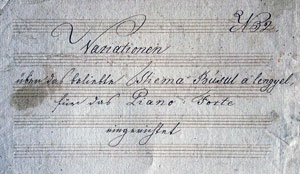 Variationen
über das beliebte Thema Búsúl a' lengyel,
für das Piano Forte
eingerichtet